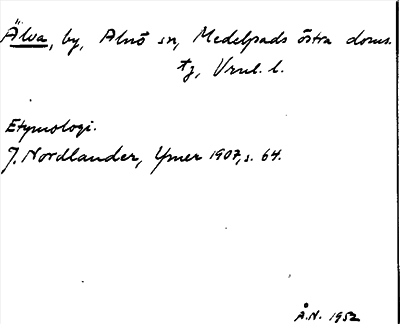 Älva, by, Alnö sn, Medelpads östra doms.
tg, Vrnl. l.
Etymologi.
J. Nordlander, Ymer 1907, s. 64.
Å.N. 1952